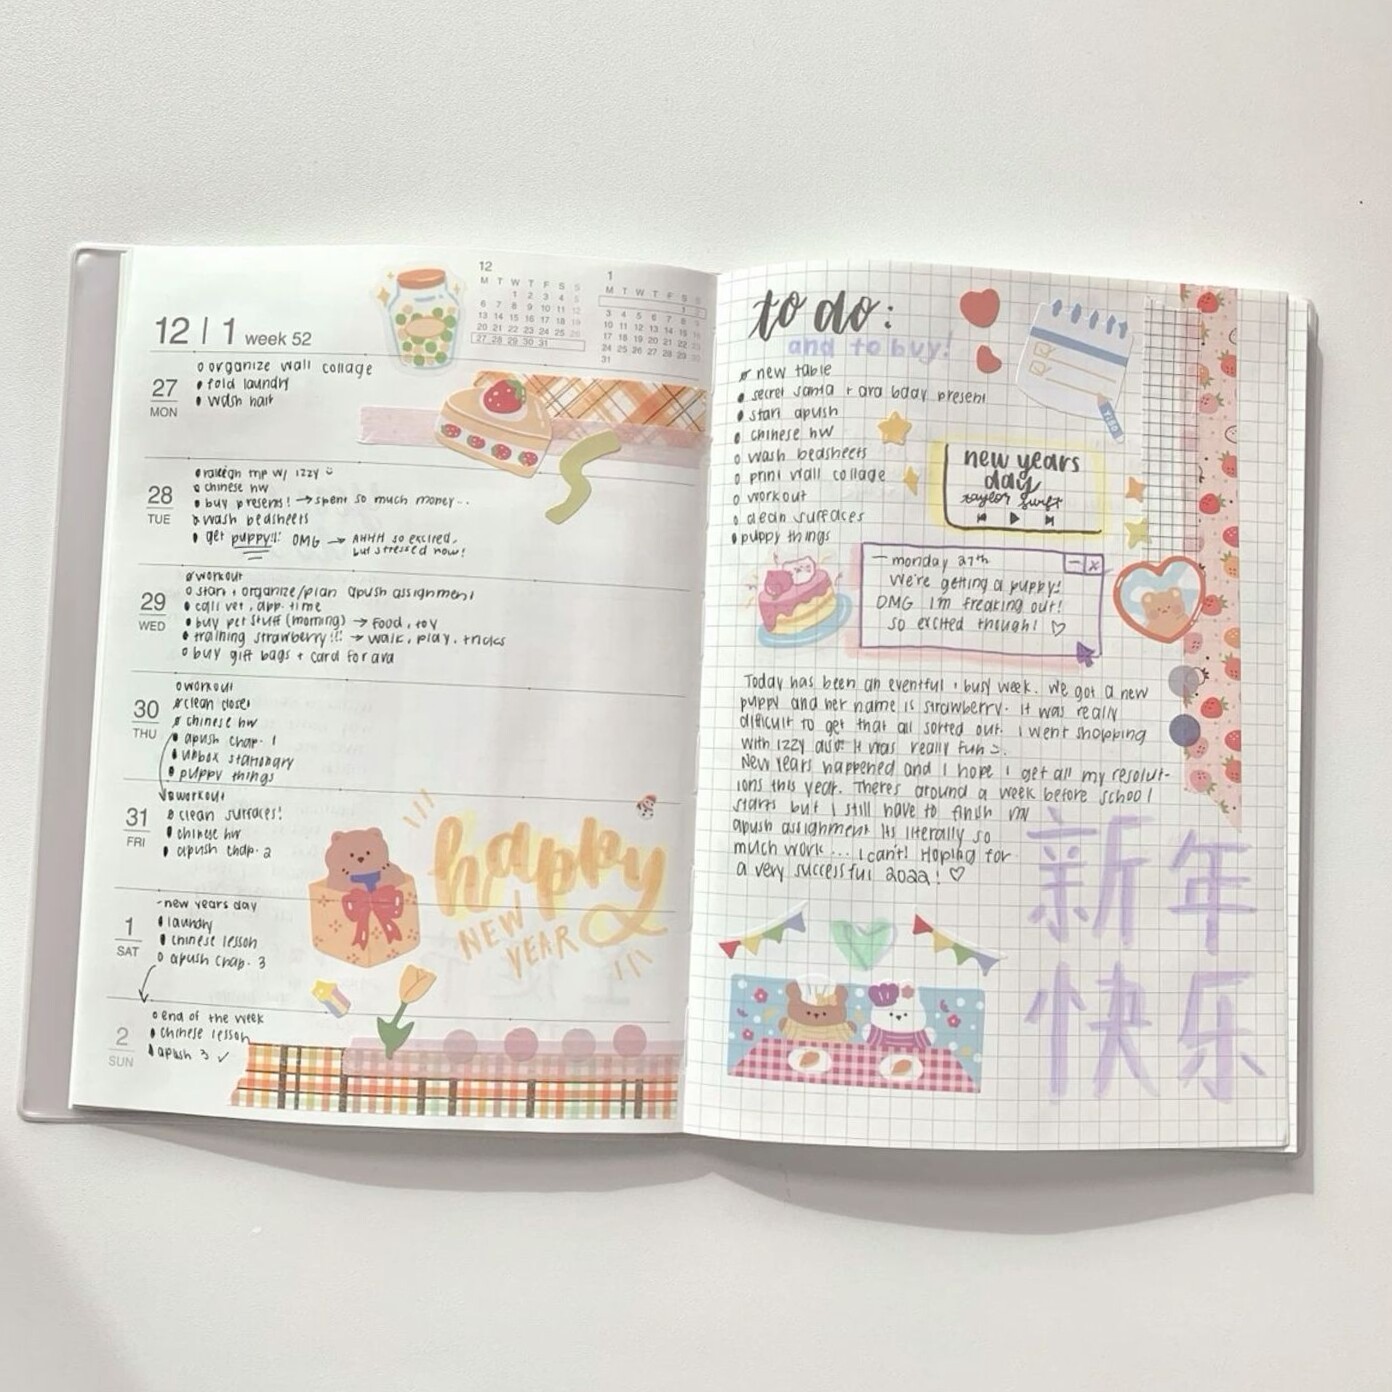 12 | 1 week 52
12
M T W T F S S
1 2 3 4 5
6 7 8 9 10 11 12
13 14 15 16 17 18 19
20 21 22 23 24 25 26
27 28 29 30 31
1
M T W T F S S
1 2
3 4 5 6 7 8 9
10 11 12 13 14 15 16
17 18 19 20 21 22 23
24 25 26 27 28 29 30
31
27
MON
organize wall collage
fold laundry
wash hair
28
TUE
raleigh trip w/ izzy
chinese hw
buy presents! → spent so much money..
wash bedsheets
get puppy!!: OMG → AHHH so excited,
but stressed now!
29
WED
workout
start + organize/plan apush assignment
call vet, app. time
buy pet stuff (morning) → food, toy
training strawberry!!: → walk, play, tricks
buy gift bags + card for ava
30
THU
workout
clean closet
chinese hw
apush chap. 1
unbox stationary
puppy things
31
FRI
workout
clean surfaces!
chinese hw
apush chap. 2
happy
NEW
YEAR
1
SAT
-new years day
laundry
chinese lesson
apush chap. 3
2
SUN
end of the week
chinese lesson
apush 3 ✓
to do:
and to buy!
new table
secret santa + ava bday present
start apush
chinese hw
wash bedsheets
print wall collage
workout
clean surfaces
puppy things
new years
day
taylor swift
— monday 27th
We're getting a puppy!
OMG I'm freaking out!
so excited though! ♡
Today has been an eventful + busy week. We got a new
puppy and her name is strawberry. It was really
difficult to get that all sorted out. I went shopping
with Izzy also. It was really fun :).
New Years happened and I hope i get all my resolut-
ions this year. There's around a week before school
starts but I still have to finish my
apush assignment. Its literally so
much work ... I can't! Hoping for
a very successful 2022! ♡
新年
快乐